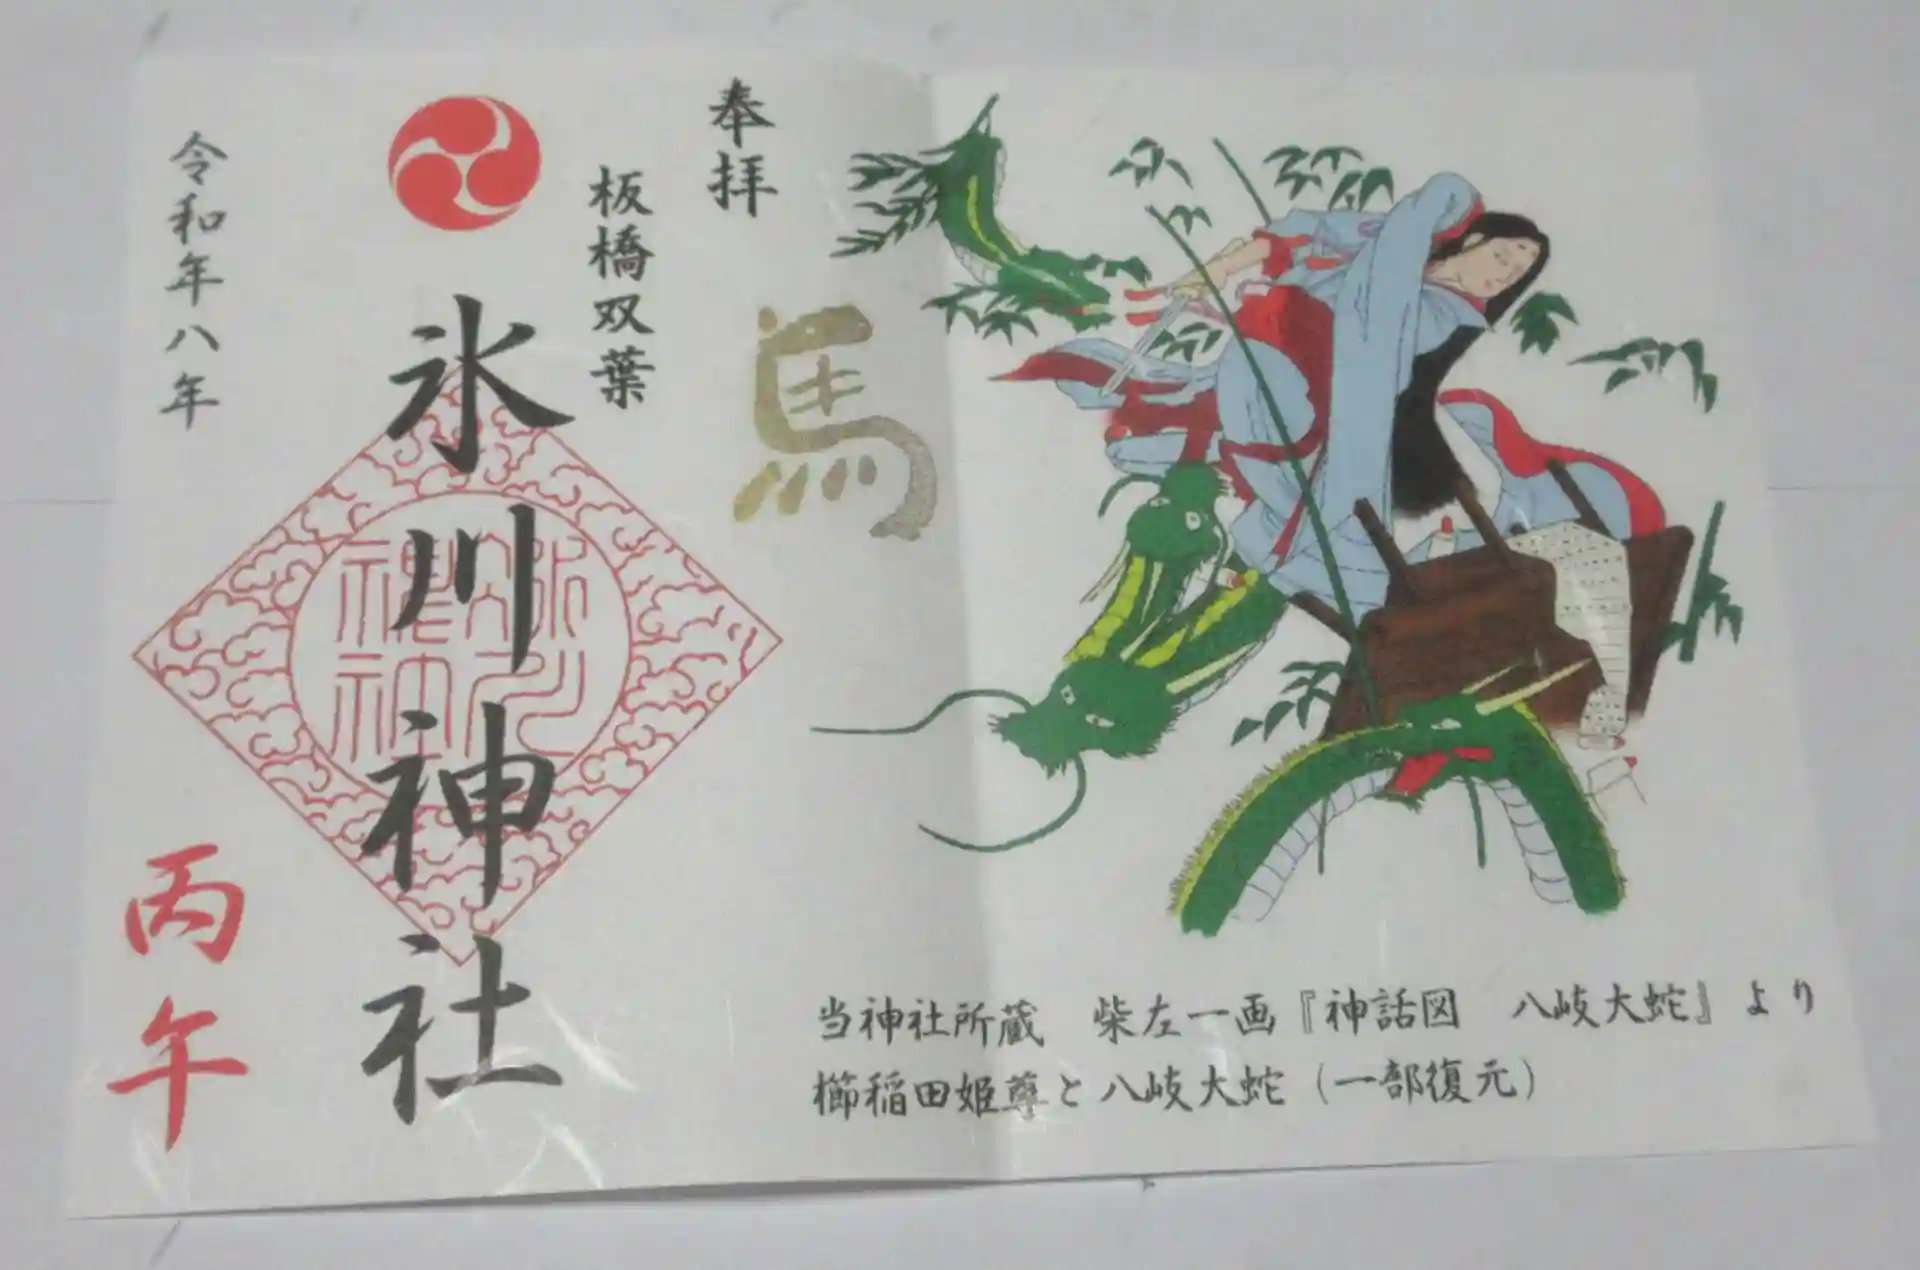 奉拝
馬
板橋双葉
氷川神社
令和年八年
丙午
当神社所蔵　柴左一画『神話図　八岐大蛇』より
櫛稲田姫尊と八岐大蛇（一部復元）